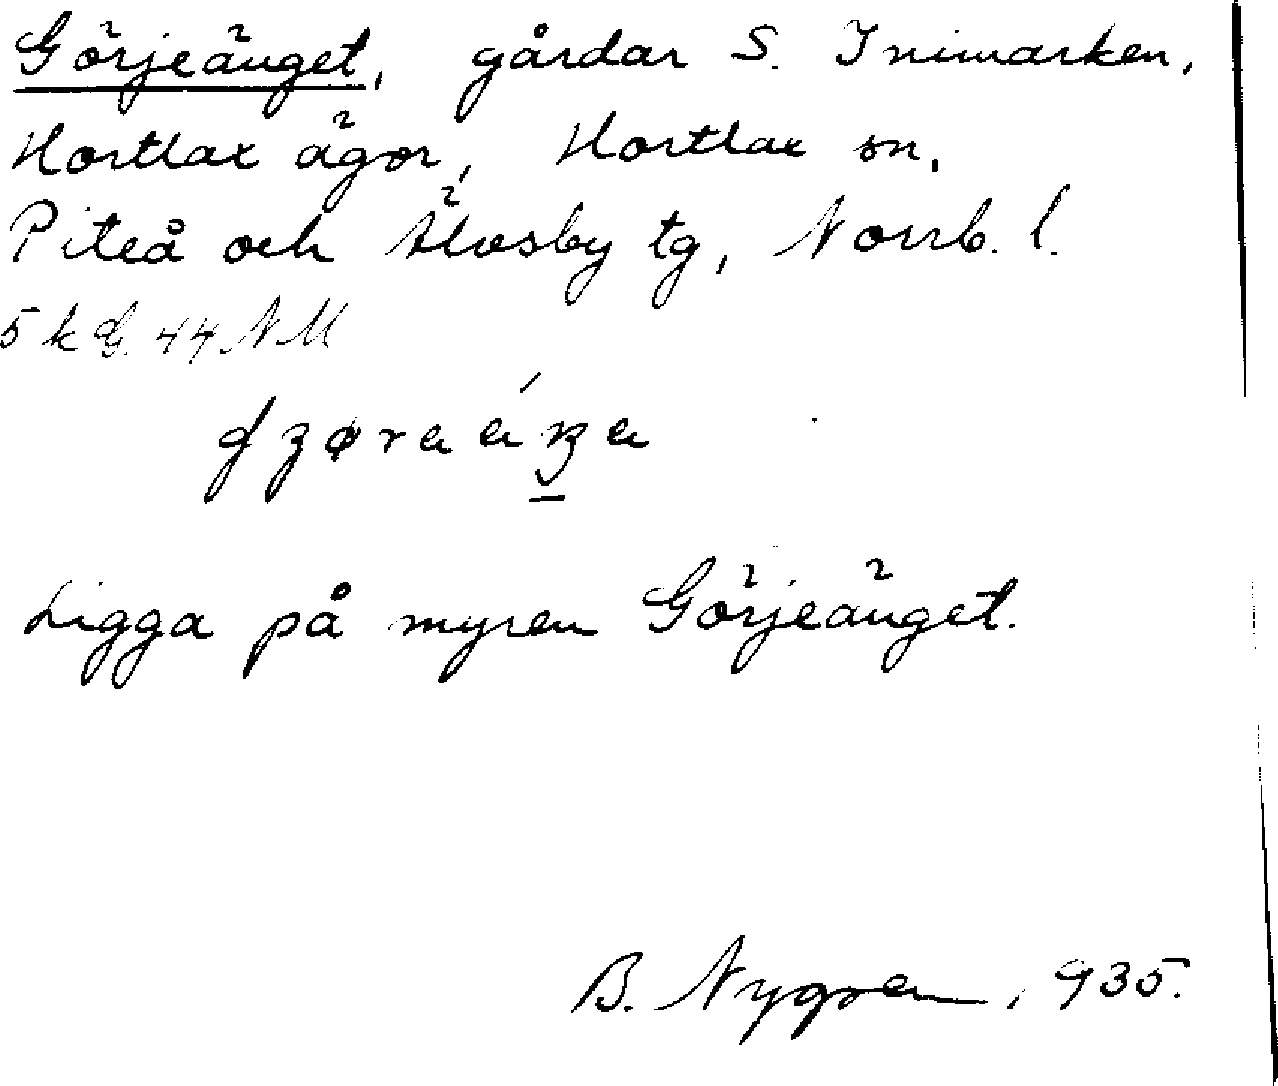 Görjeänget, gårdar S. Inimarken,
Hortlax ägor, Hortlax sn,
Piteå och Älvsby tg, Norrb. l.
5 k G. 44 NM
Ligga på myren Görjeänget.
B. Nygren, 935.